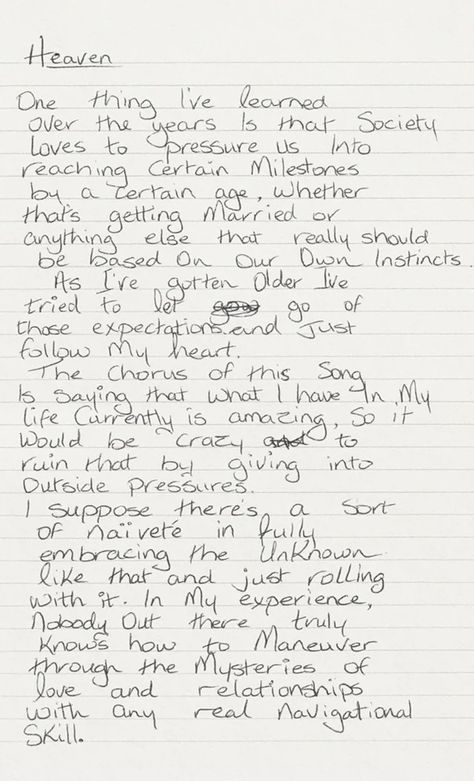 Heaven
One thing I've learned
over the years Is that Society
Loves to pressure us Into
reaching Certain Milestones
by a certain age, whether
that's getting Married or
anything else that really should
be based On Our Own Instincts.
As I've gotten Older I've
tried to let go of
those expectations and Just
follow My heart.
The Chorus of this Song
Is Saying that what I have In My
life Currently is amazing, So it
would be crazy to
ruin that by giving into
Outside Pressures.
I suppose there's a sort
of naïveté in fully
embracing the UnKnown
like that and just rolling
with it. In My experience,
Nobody Out there truly
Knows how to Maneuver
through the Mysteries of
love and relationships
with any real navigational
Skill.